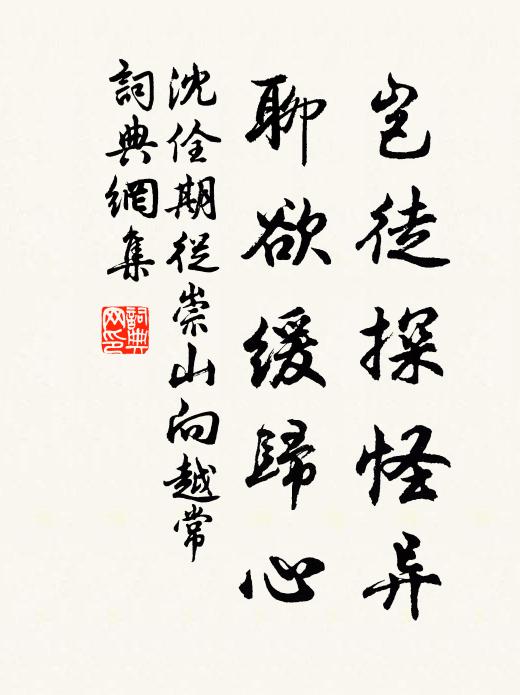 岂徒探怪异
聊欲缓歸心
沈佺期從崇山向越常
詞典網集
詞典
网印